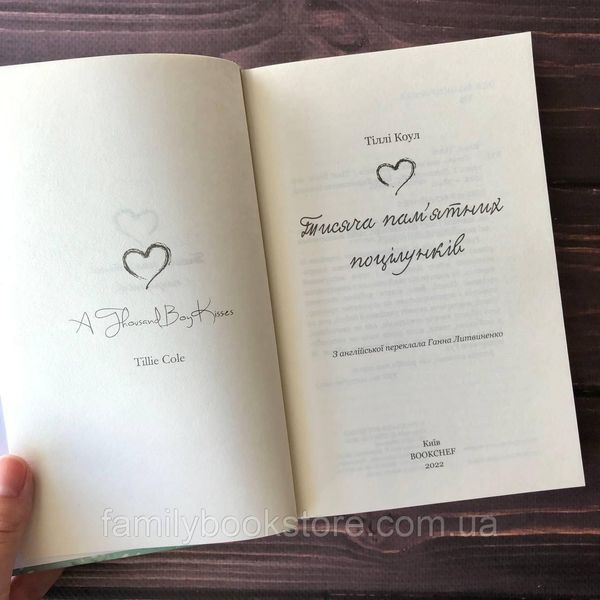 A Thousand Boy Kisses
Tillie Cole
Тіллі Коул
Тисяча пам'ятних
поцілунків
З англійської переклала Ганна Литвиненко
Київ
BOOKCHEF
2022
familybookstore.com.ua